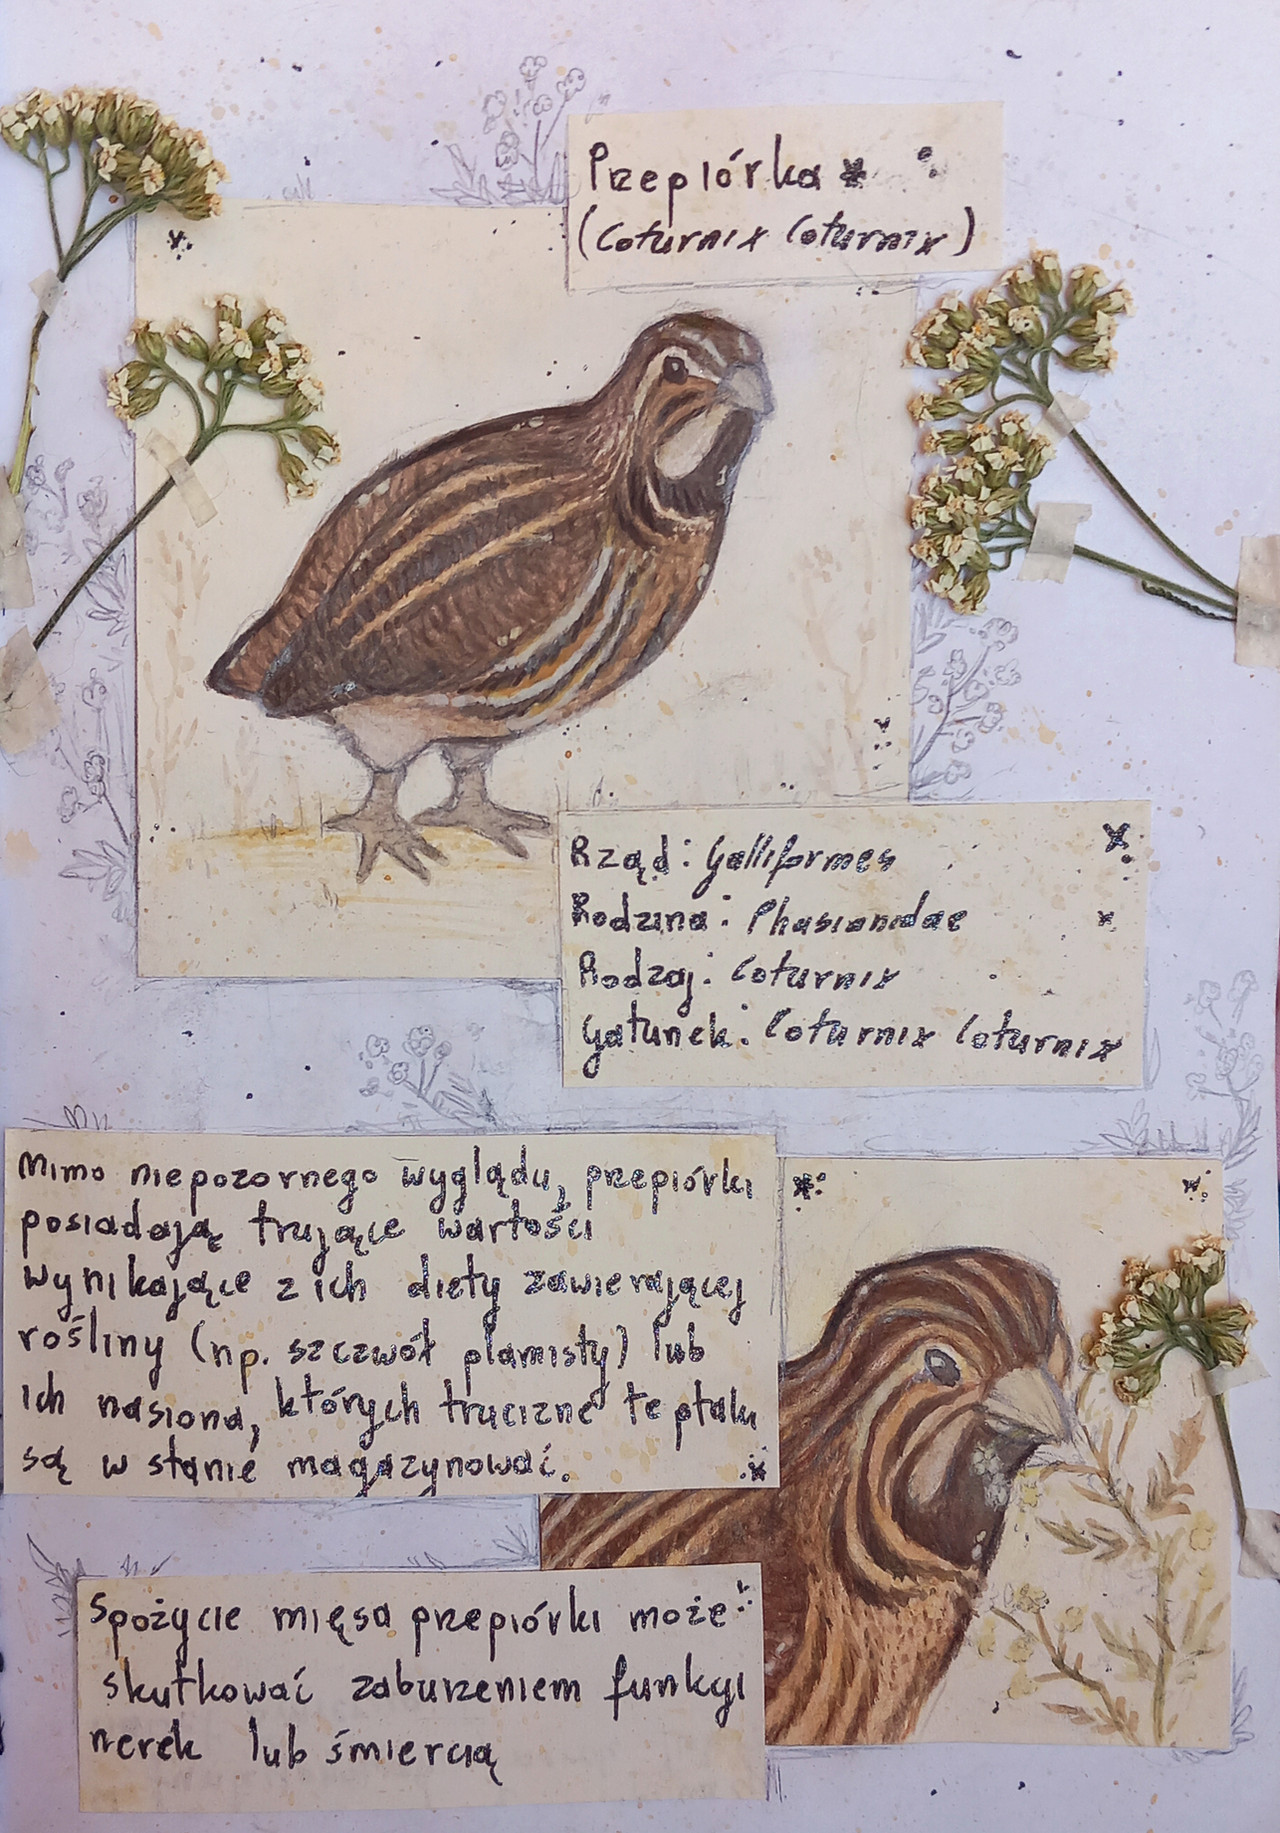 Przepiórka
(Coturnix Coturnix)
Rząd: Galliformes
Rodzina: Phasianidae
Rodzaj: Coturnix
Gatunek: Coturnix Coturnix
Mimo niepozornego wyglądu, przepiórki
posiadają trujące wartości
wynikające z ich diety zawierającej
rośliny (np. szczwół plamisty) lub
ich nasiona, których truciznę te ptaki
są w stanie magazynować.
Spożycie mięsa przepiórki może
skutkować zaburzeniem funkcji
nerek lub śmiercią